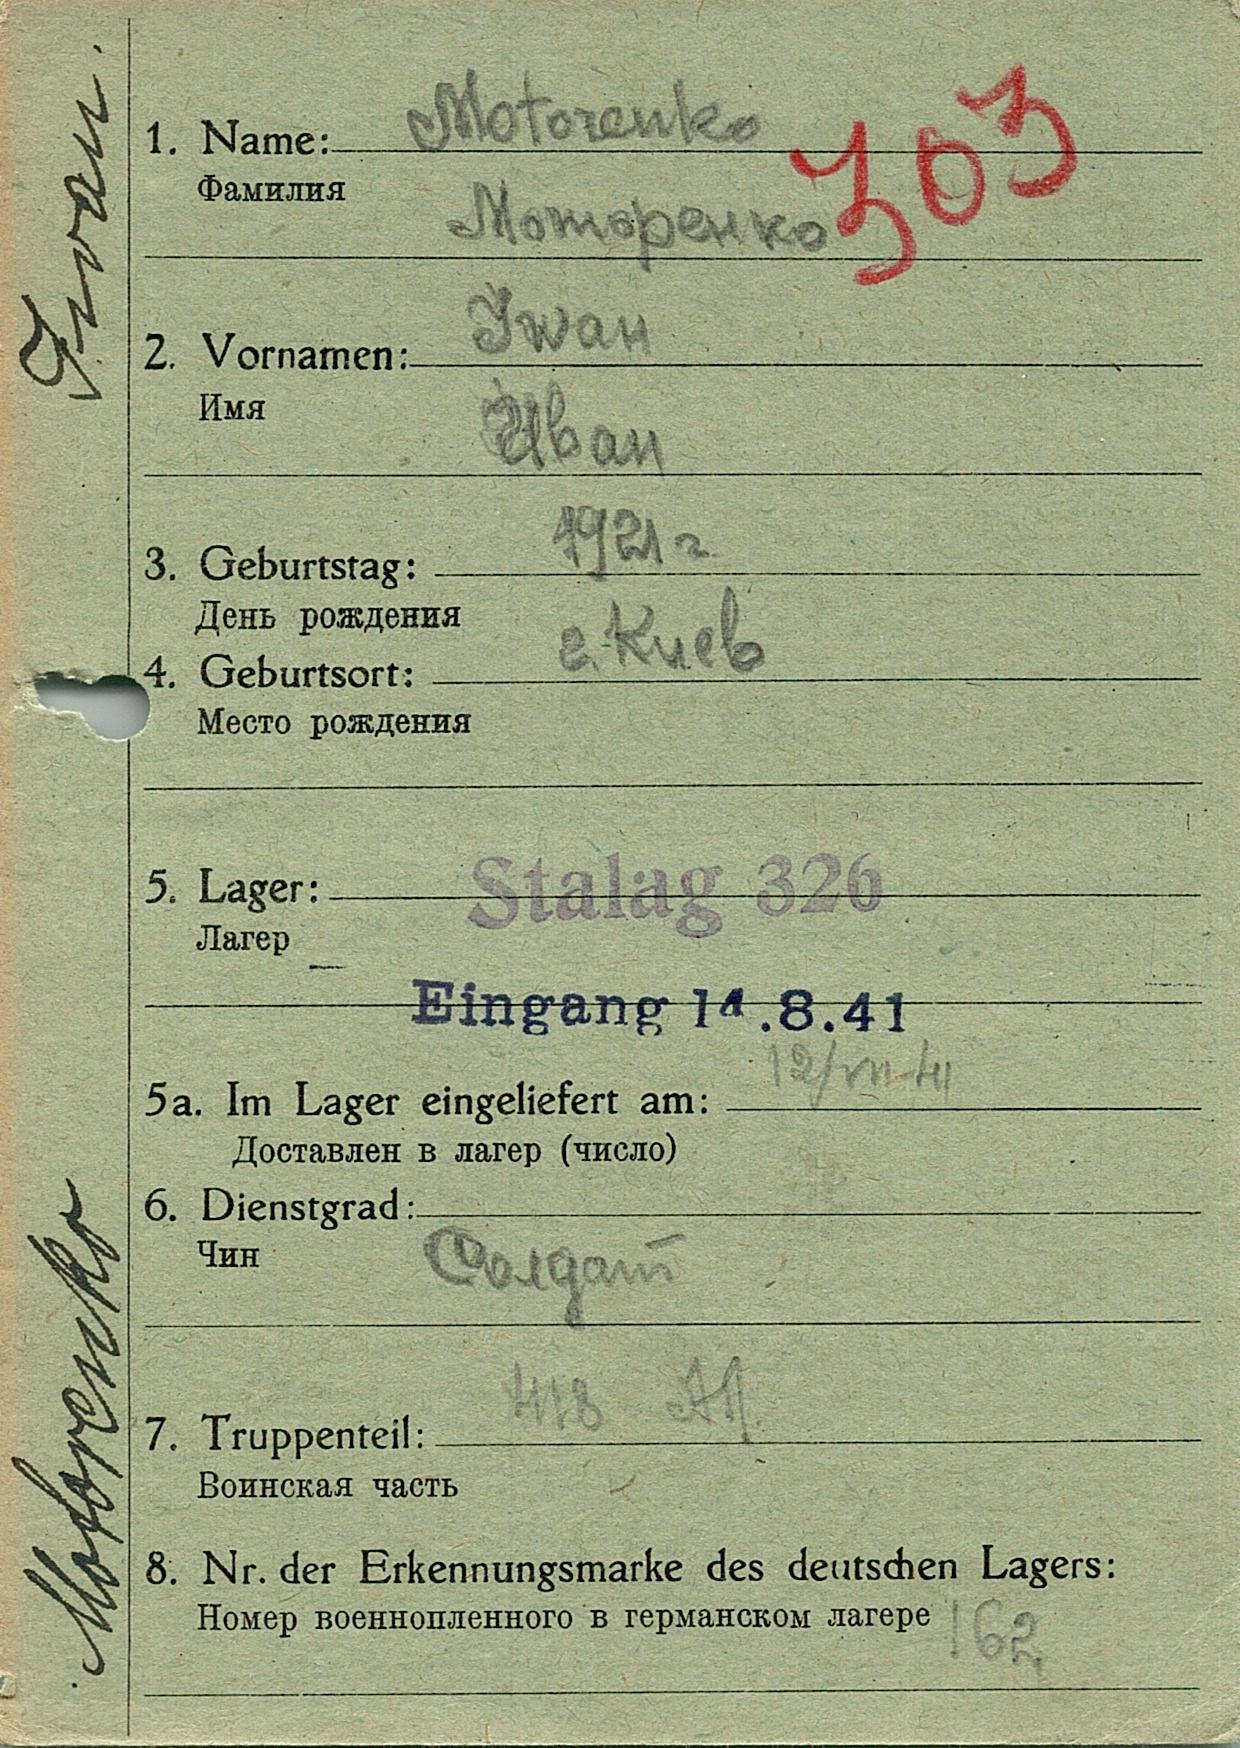 Motorenko
1. Name:
Фамилия
303
Моторенко
Iwaн
2. Vornamen:
Имя
Иван
1921 г
3. Geburtstag:
День рождения
г. Киев
4. Geburtsort:
Место рождения
5. Lager: Stalag 326
Лагер
Eingang 14.8.41
12/VII-41
5a. Im Lager eingeliefert am:
Доставлен в лагер (число)
6. Dienstgrad:
Чин
Солдат
418 АП.
7. Truppenteil:
Воинская часть
8. Nr. der Erkennungsmarke des deutschen Lagers:
Номер военнопленного в германском лагере 162
Motorenko Iwan.